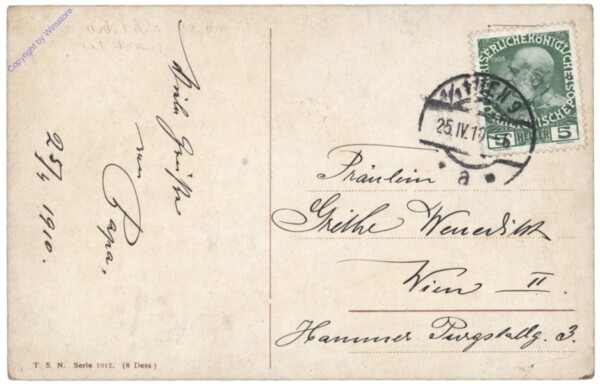 Copyright by Wimstore
Viele Grüße
von
Papa.
25/4 1910.
T. S. N. Serie 1012. (6 Dess)
KAISERLICHE KÖNIGLICHE
1908
5 HELLER 5
1/1 WIEN 9
25.IV.10
a
Fräulein
Grethe Wenedikt
Wien II.
Hammer Purgstallg. 3.